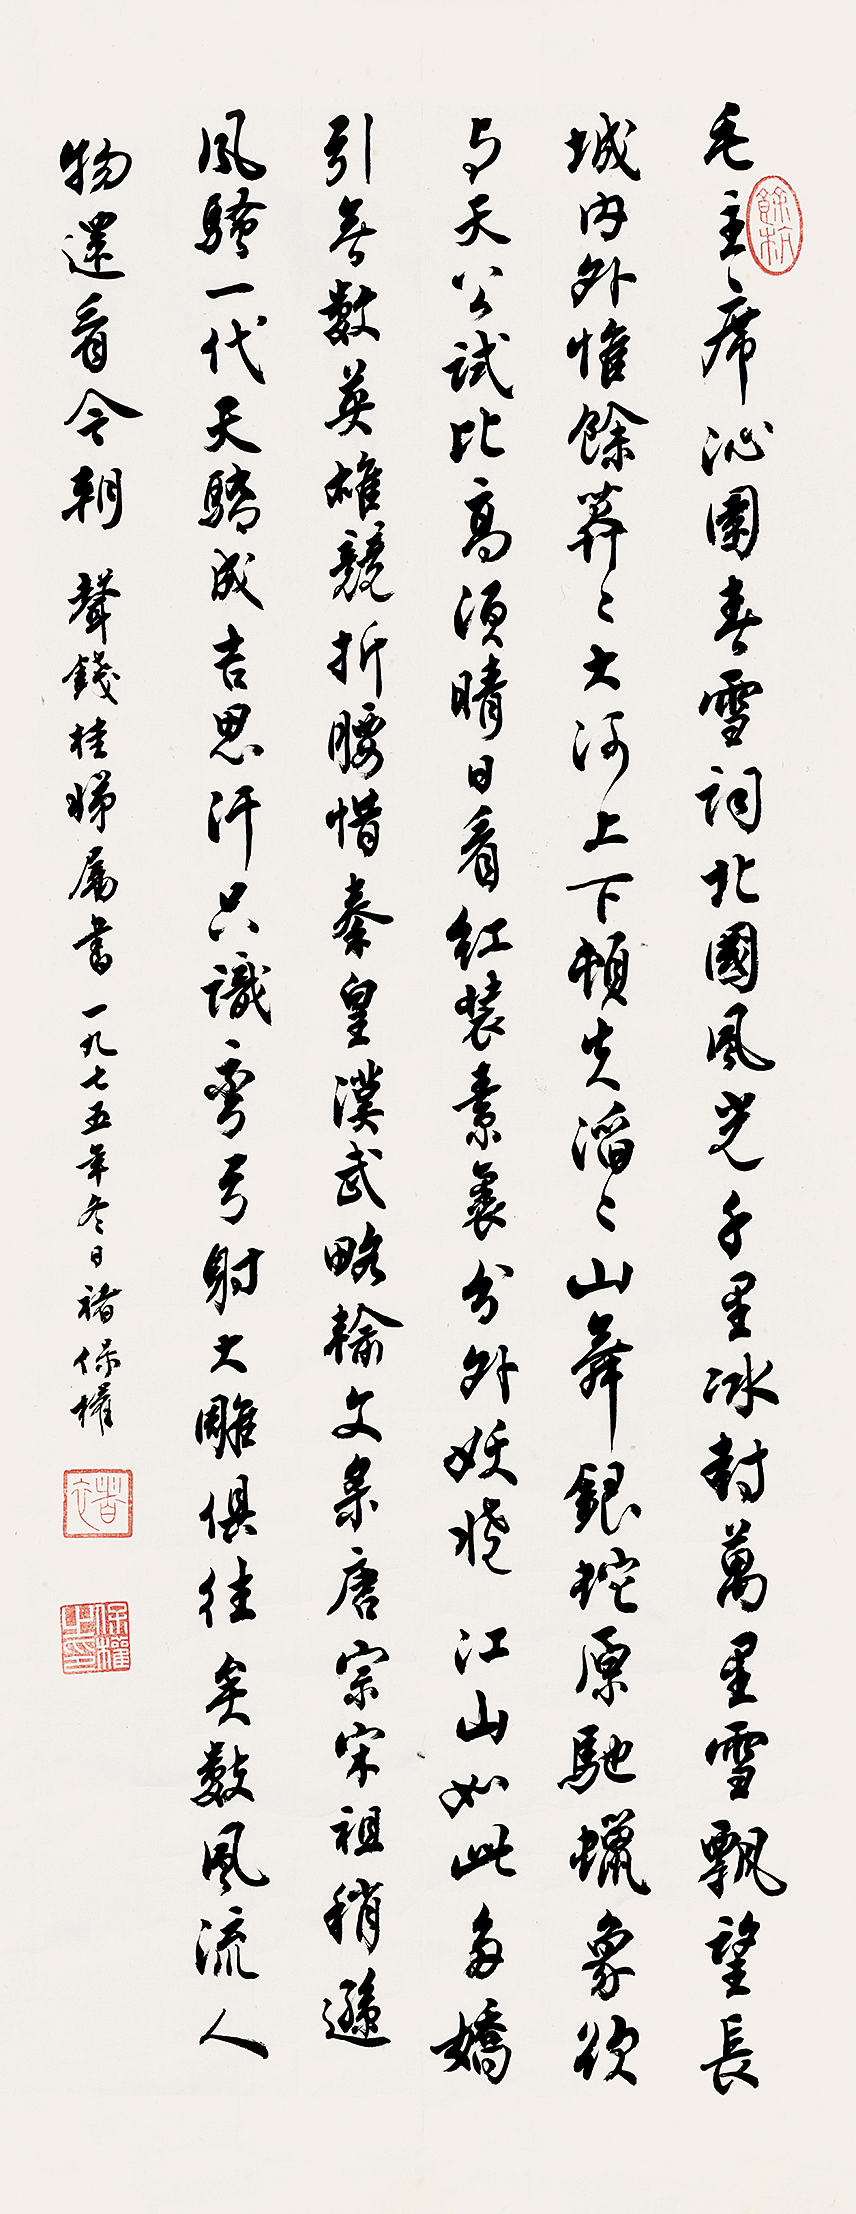 毛主席沁園春雪詞北國風光千里冰封萬里雪飄望長
城内外惟餘莽〻大河上下頓失滔〻山舞銀蛇原馳蠟象欲
与天公試比高須晴日看红装素裹分外妖嬈 江山如此多嬌
引無數英雄競折腰惜秦皇漢武略輸文采唐宗宋祖稍遜
風騷一代天驕成吉思汗只識彎弓射大雕俱往矣數風流人
物還看今朝 聲錢桂娣属書 一九七五年冬日 褚保權
餘杭
褚
保權之印